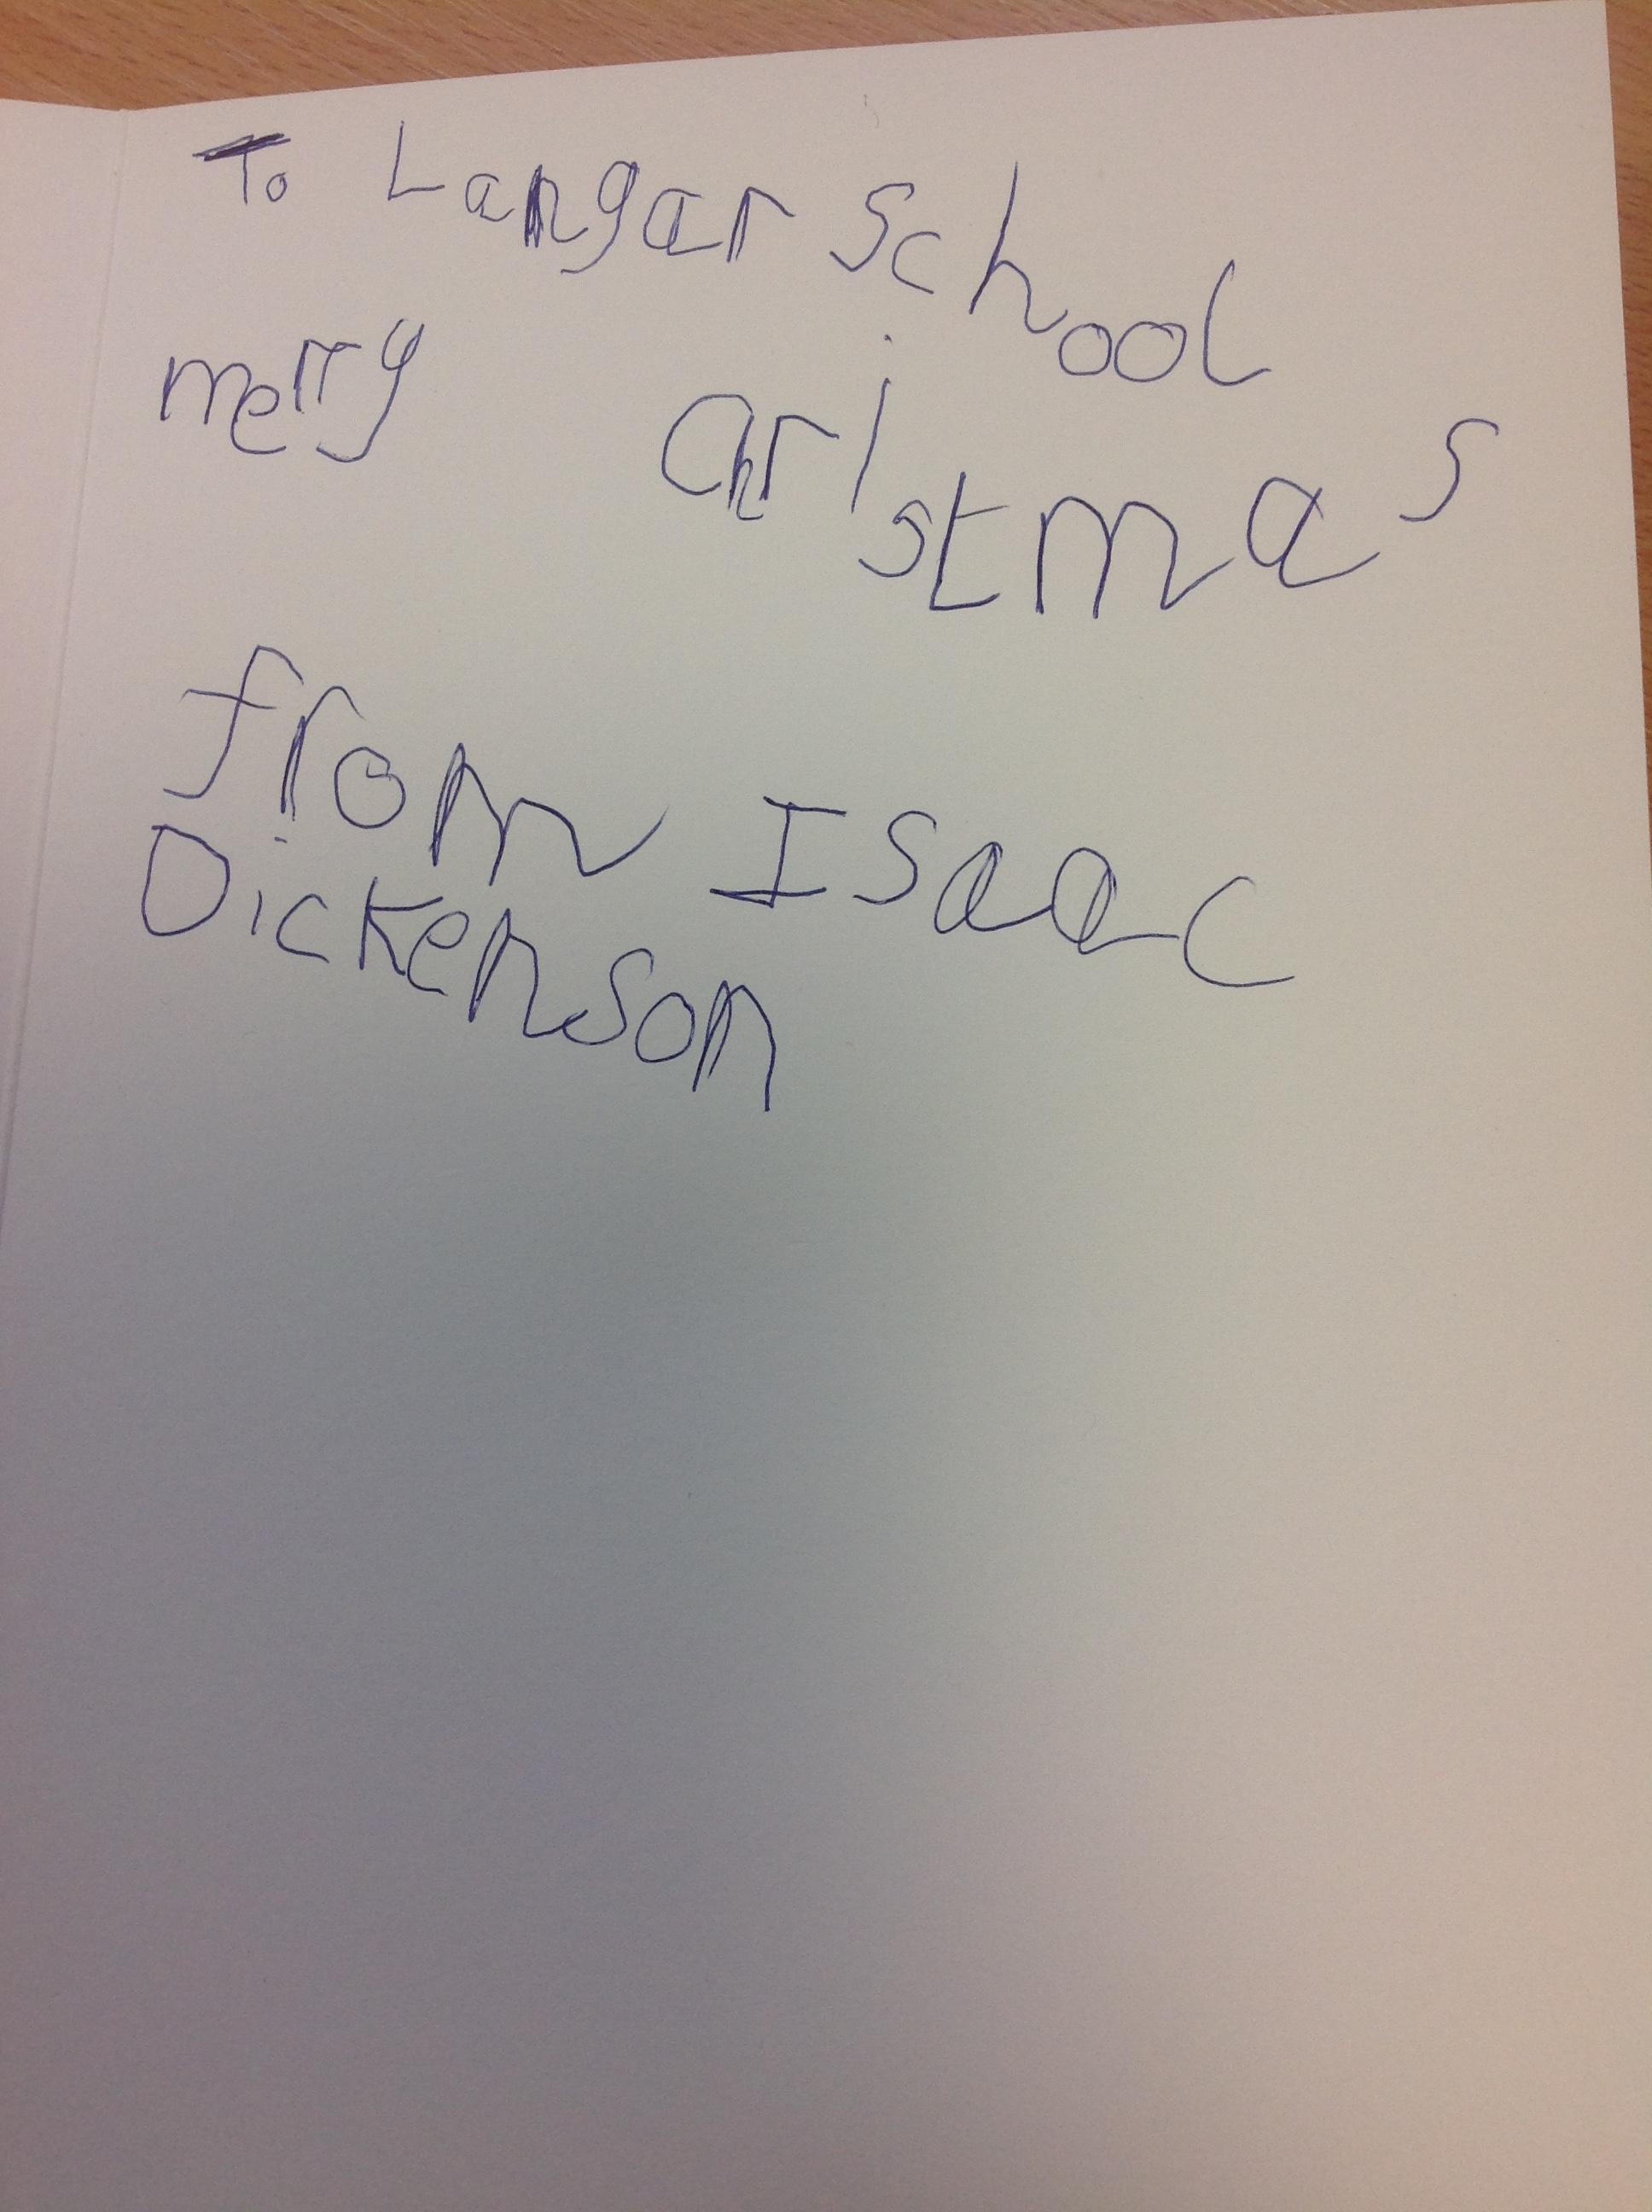 To Langar School
merry Christmas
from Isaac
Dickenson